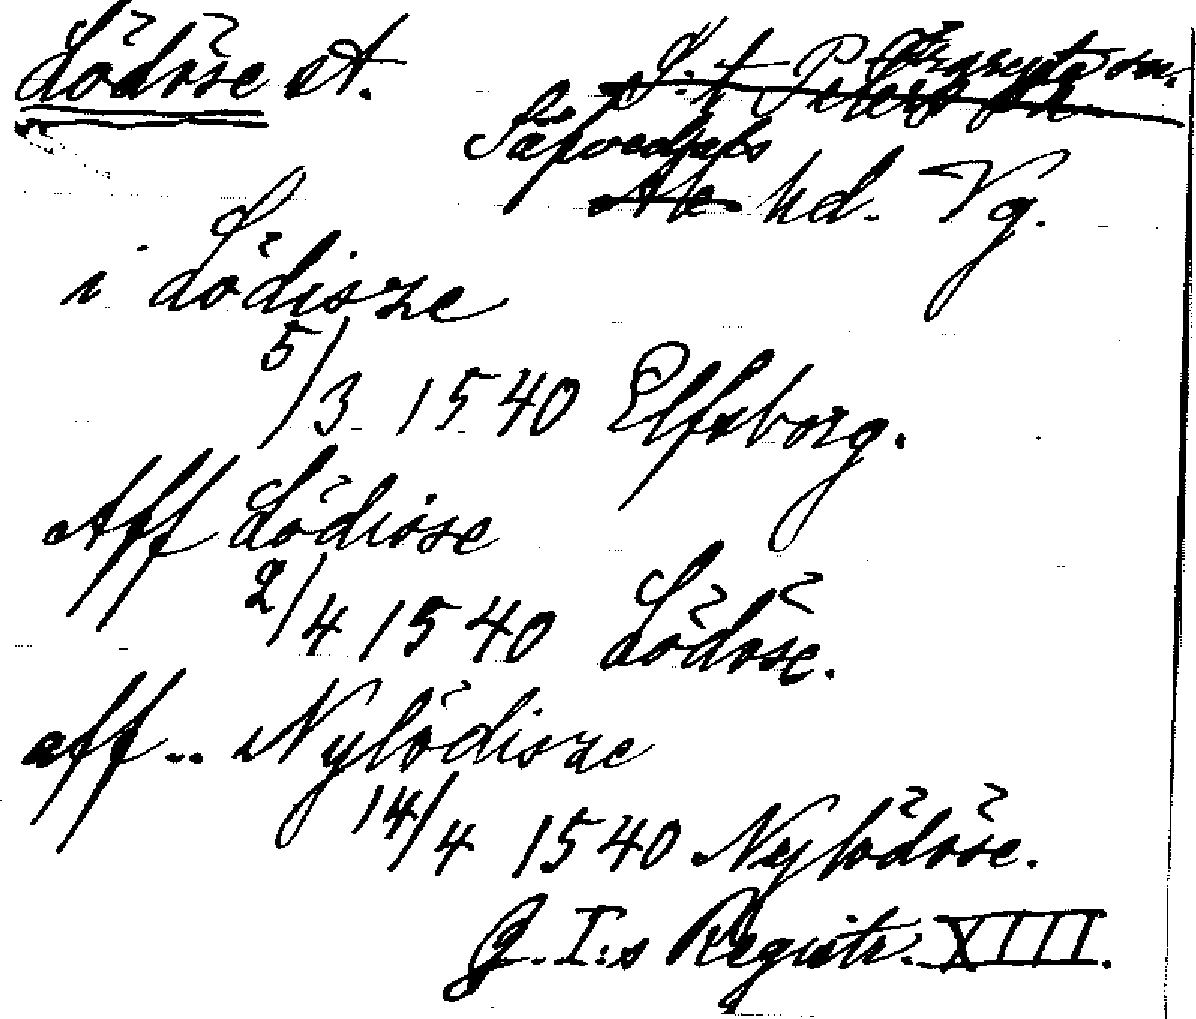 Lödöse st.
S:t Peders sn.
Sävedals
Ale hd. Vg.
i Lödisze
5/3 1540 Elfsborg.
Aff Lödiose
2/4 1540 Lödöse.
aff .. Nylödisze
14/4 1540 Nylödöse.
G. I:s Registr. XIII.